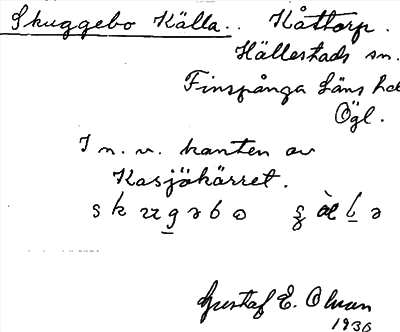 Skuggebo Källa.. Kåttorp.
Hällestads sn.
Finspånga Läns hd
Ögl.
I n. v. kanten av
Kasjökärret.
Gustaf E. Olsson
1930